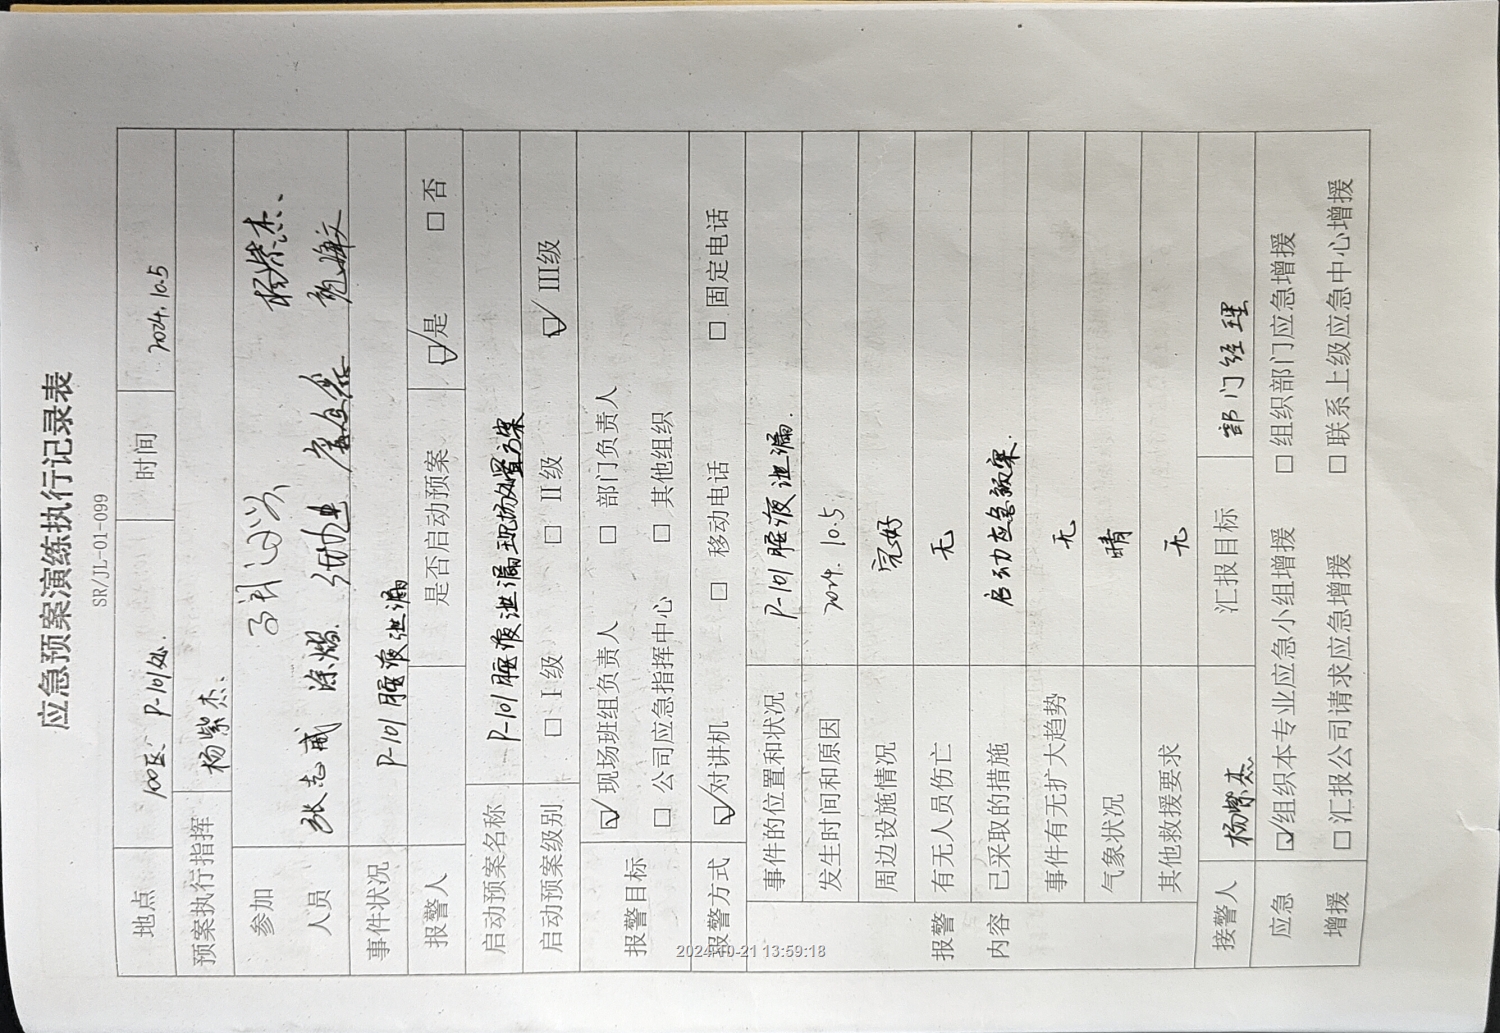 应急预案演练执行记录表
SR/JL-01-099
地点 100区 P-101处. 时间 2024.10.5
预案执行指挥 杨紫杰
参加 杨紫杰
人员 张志武
事件状况 P-101 胺液泄漏
报警人 是否启动预案 ☑是 □否
启动预案名称 P-101胺液泄漏现场处置方案
启动预案级别 □ I级 □ II级 ☑ III级
报警目标 ☑现场班组负责人 □ 部门负责人
□ 公司应急指挥中心 □ 其他组织
报警方式 ☑对讲机 □ 移动电话 □ 固定电话
报警内容
事件的位置和状况 P-101 胺液泄漏.
发生时间和原因 2024. 10.5
周边设施情况 完好
有无人员伤亡 无
已采取的措施 启动应急预案.
事件有无扩大趋势 无
气象状况 晴
其他救援要求 无
接警人 杨紫杰 汇报目标 部门经理
应急 ☑组织本专业应急小组增援 □ 组织部门应急增援
增援 □ 汇报公司请求应急增援 □ 联系上级应急中心增援
2024-10-21 13:59:18